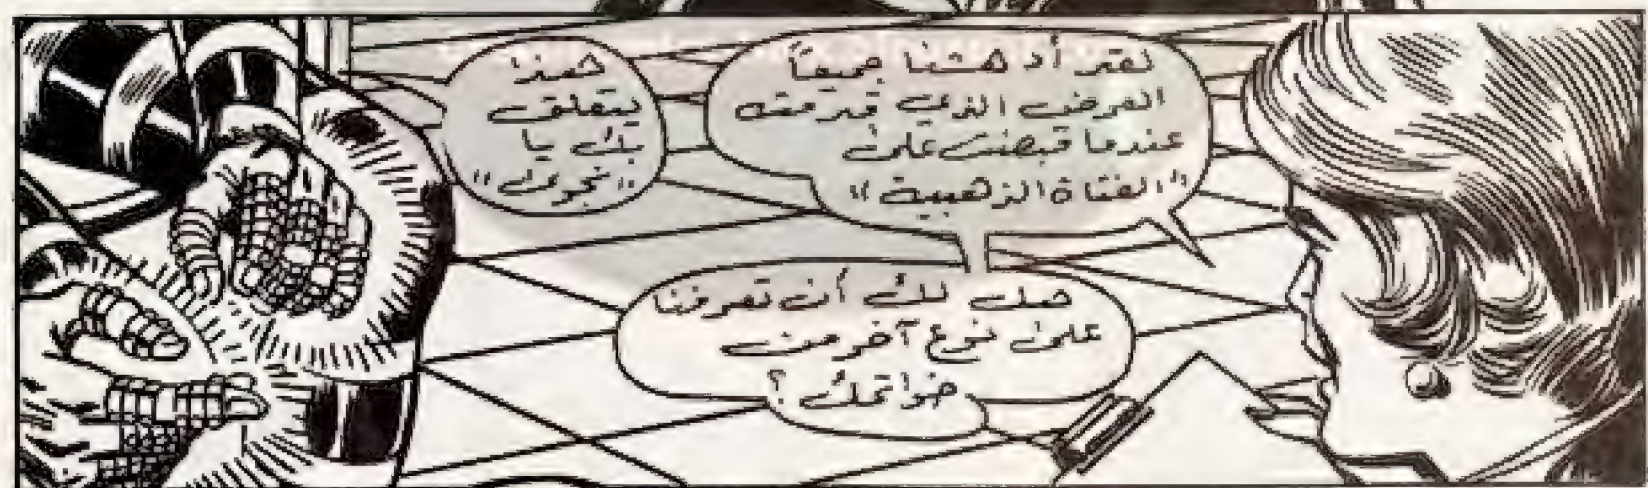 لقد أدهشنا جميعاً
العرض الذي قدمته
عندما قبضت على
"الفتاة الذهبية"
هل لك أن تعرفنا
على نوع آخر من
خواتمك؟
هذا
يتعلق
بك يا
"نجوى"